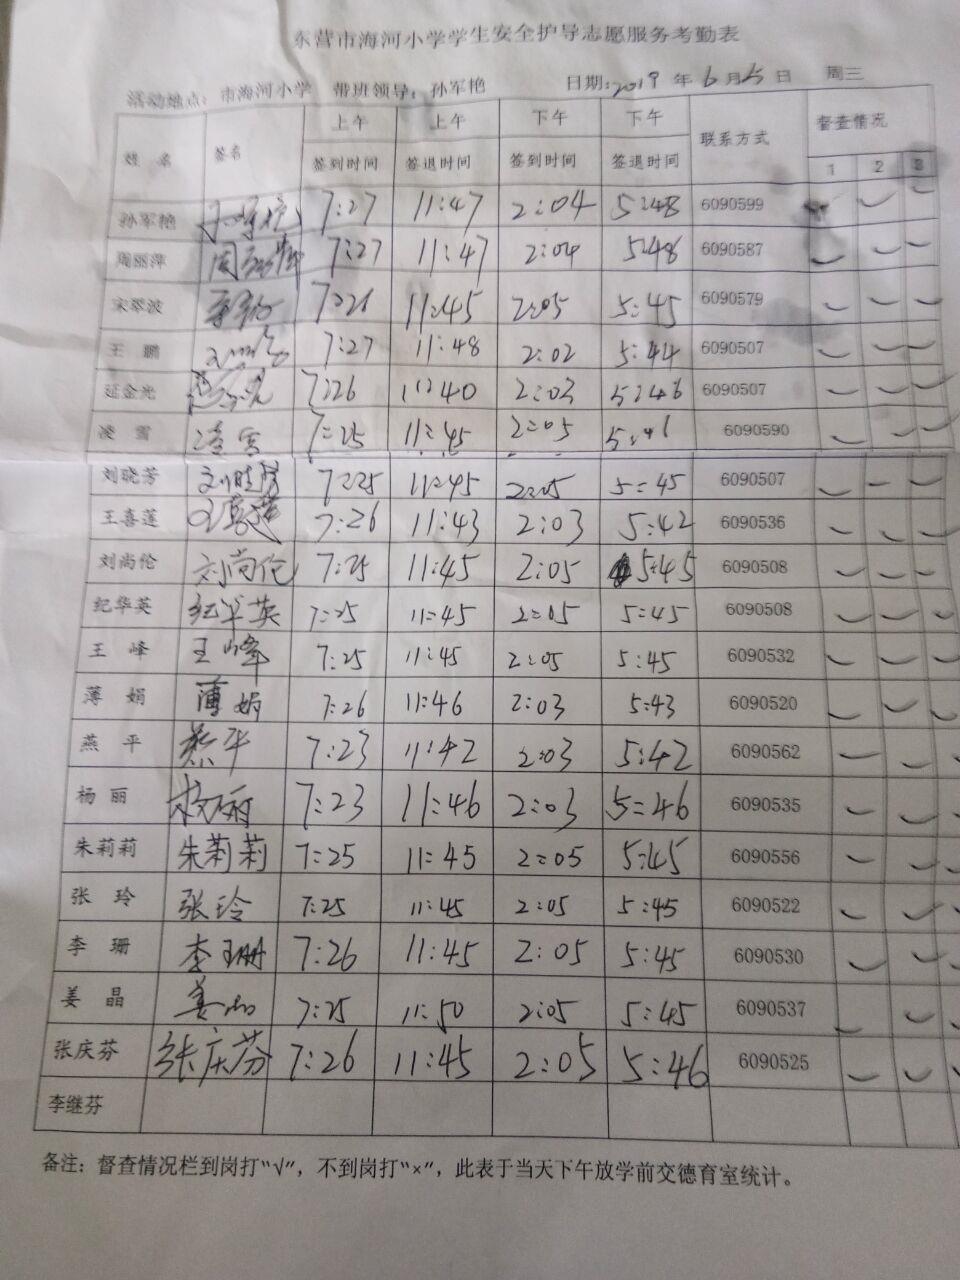 东营市海河小学学生安全护导志愿服务考勤表
活动地点：市海河小学 带班领导：孙军艳 日期:2019 年 6 月 5 日 周三
姓 名 签名 上午 签到时间 上午 签退时间 下午 签到时间 下午 签退时间 联系方式 督查情况 1 2 3
孙军艳 7:27 11:47 2:04 5:48 6090599
周丽萍 周丽萍 7:27 11:47 2:04 5:48 6090587
宋翠波 7:26 11:45 2:05 5:45 6090579
王 鹏 7:27 11:48 2:02 5:44 6090507
延金光 7:26 11:40 2:03 5:46 6090507
凌 雪 凌雪 7:25 11:45 2:05 5:46 6090590
刘晓芳 刘晓芳 7:25 11:45 2:05 5:45 6090507
王喜莲 王喜莲 7:26 11:43 2:03 5:42 6090536
刘尚伦 刘尚伦 7:25 11:45 2:05 5:45 6090508
纪华英 纪华英 7:25 11:45 2:05 5:45 6090508
王 峰 王峰 7:25 11:45 2:05 5:45 6090532
薄 娟 薄娟 7:26 11:46 2:03 5:43 6090520
燕 平 燕平 7:23 11:42 2:03 5:42 6090562
杨 丽 杨丽 7:23 11:46 2:03 5:46 6090535
朱莉莉 朱莉莉 7:25 11:45 2:05 5:45 6090556
张 玲 张玲 7:25 11:45 2:05 5:45 6090522
李 珊 李珊 7:26 11:45 2:05 5:45 6090530
姜 晶 姜晶 7:25 11:50 2:05 5:45 6090537
张庆芬 张庆芬 7:26 11:45 2:05 5:46 6090525
李继芬
备注：督查情况栏到岗打“√”，不到岗打“×”，此表于当天下午放学前交德育室统计。